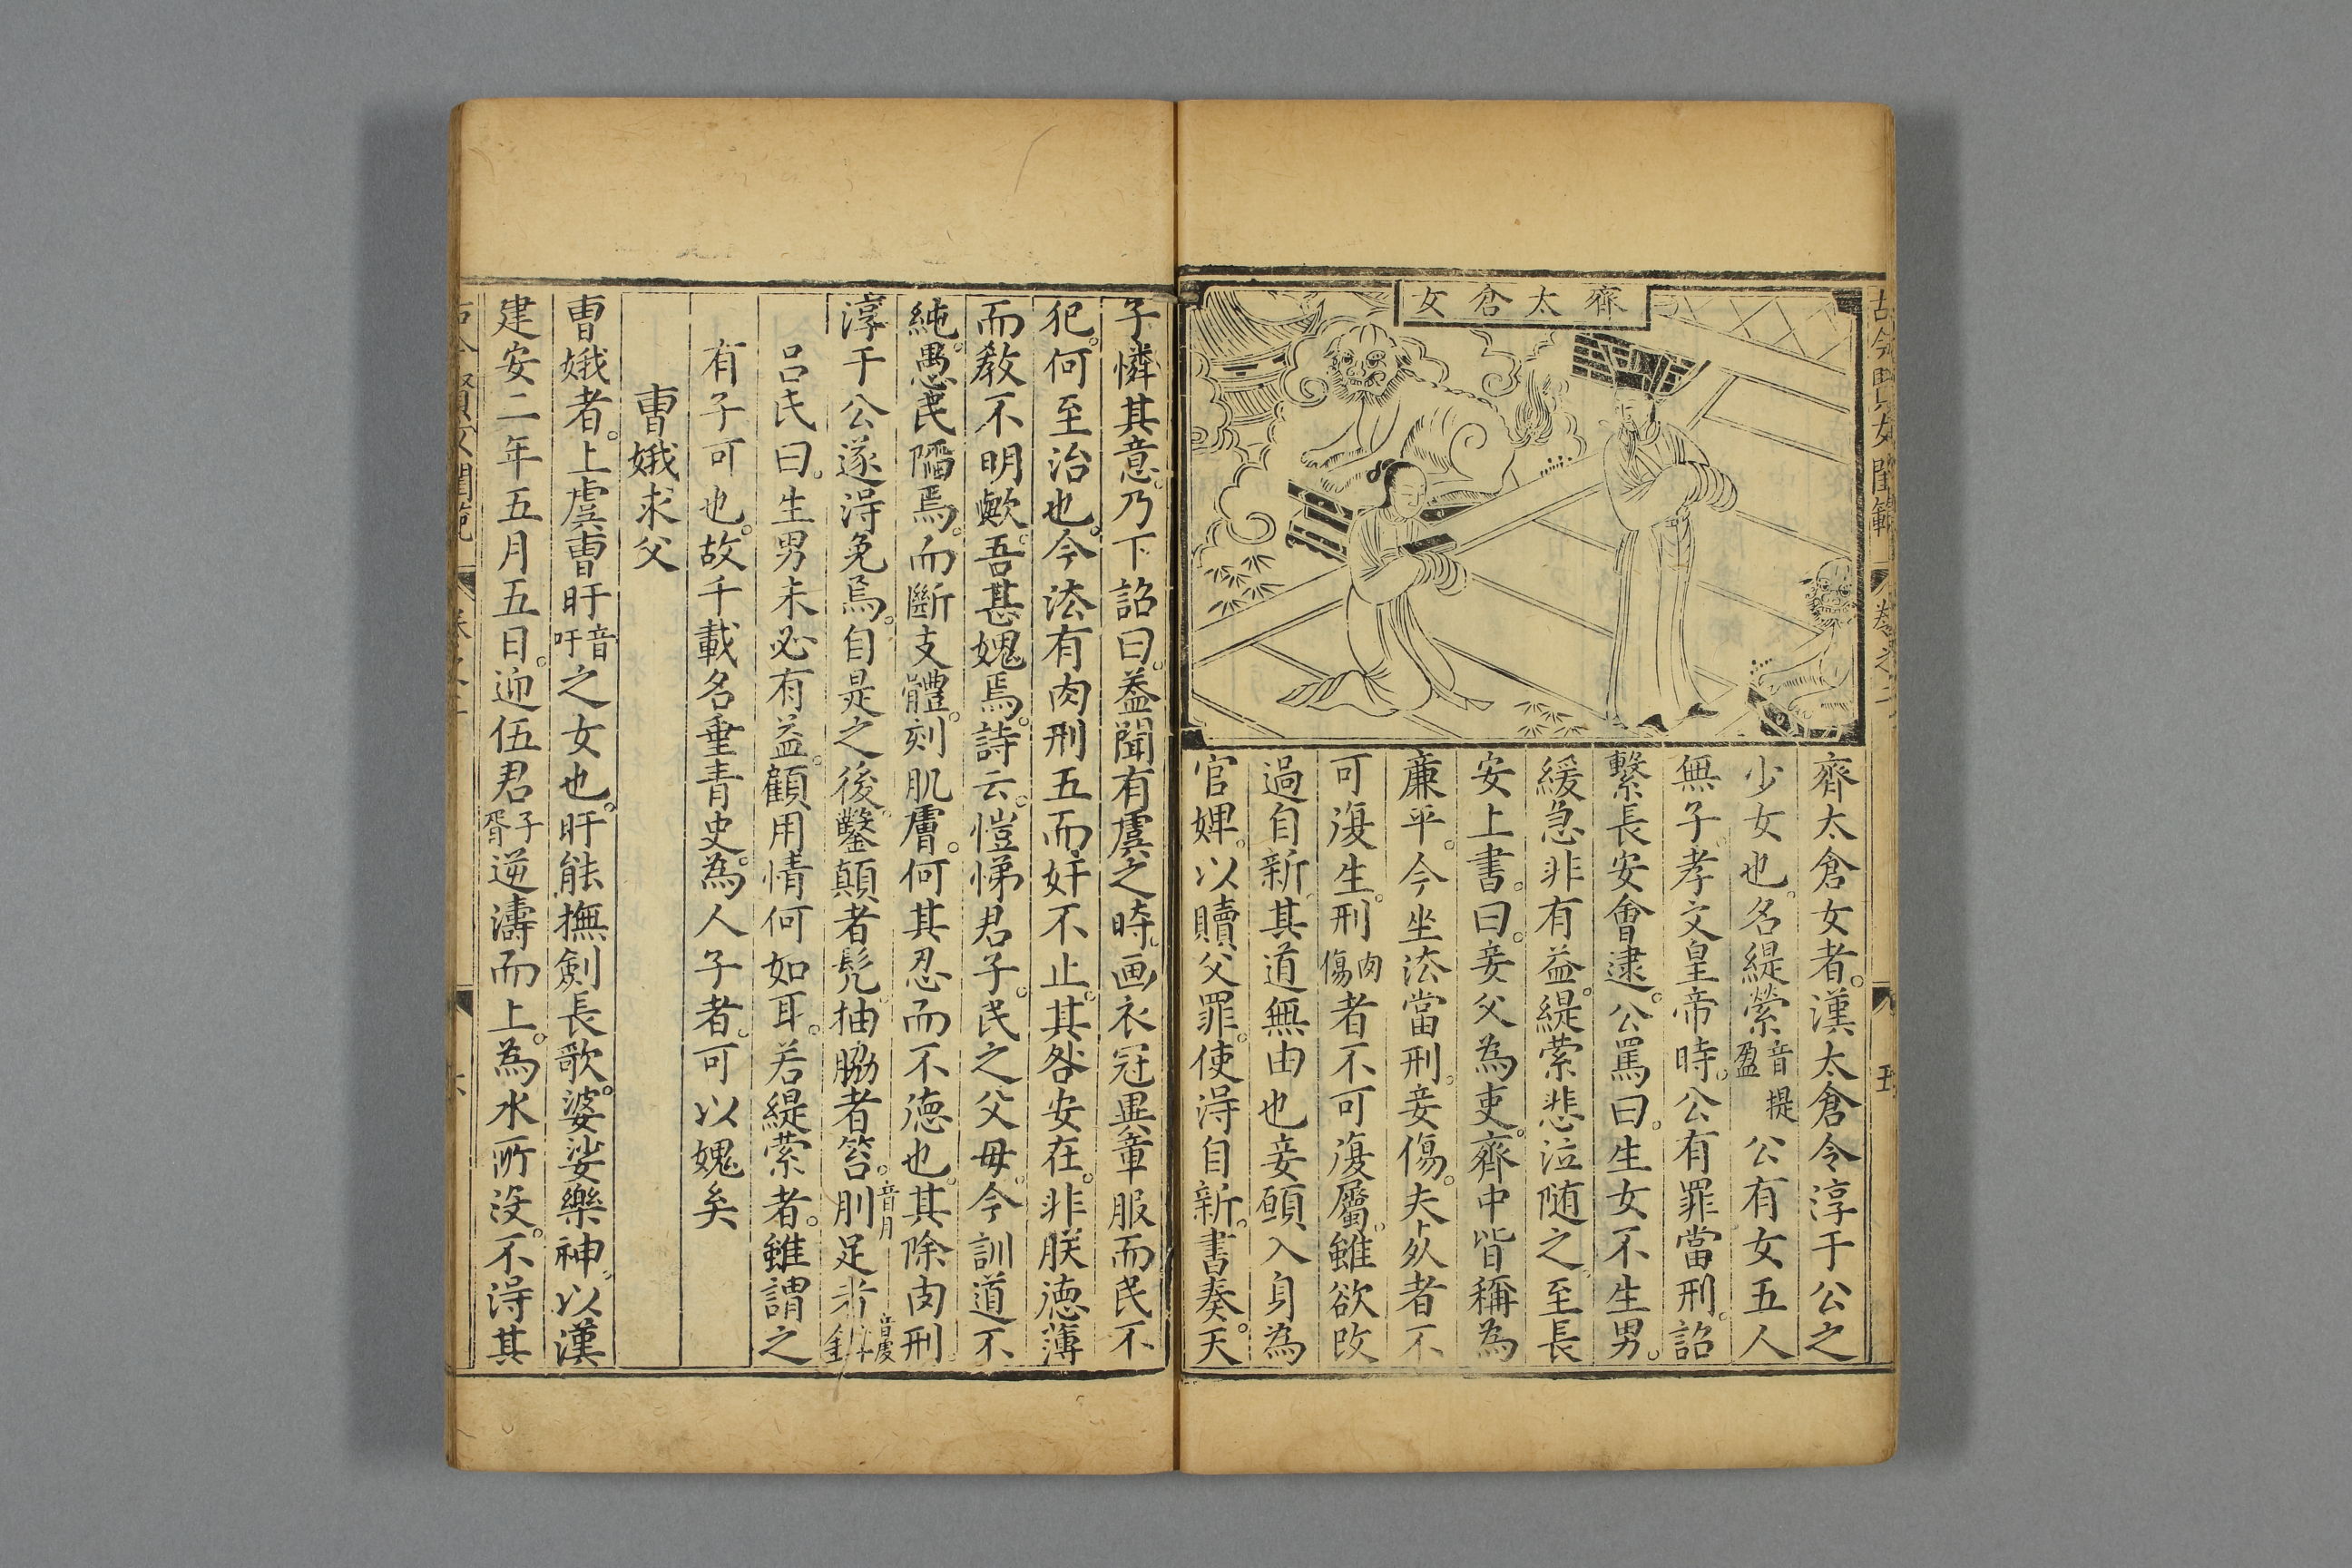 古今賢女閨範
卷之二
五
齊太倉女
齊太倉女者。漢太倉令淳于公之
少女也。名緹縈音提盈公有女五人
無子。孝文皇帝時。公有罪當刑。詔
繫長安會逮。公罵曰。生女不生男。
緩急非有益。緹縈悲泣随之。至長
安上書。曰。妾父為吏。齊中皆稱為
廉平。今坐法當刑。妾傷。夫死者不
可復生。刑肉傷者不可復屬。雖欲改
過自新。其道無由也妾願入身為
官婢。以贖父罪。使淂自新。書奏。天
子憐其意。乃下詔曰。盖聞有虞之時。画衣冠異章服而民不
犯。何至治也。今法有肉刑五而奸不止。其咎安在。非朕德薄
而教不明歟。吾甚媿焉。詩云。愷悌君子。民之父母。今訓道不
純。愚民陷焉。而斷支體。刻肌膚。何其忍而不德也。其除肉刑
淳于公遂淂免焉。自是之後。鑿顛者髠。抽脇者笞。刖音月足者
呂氏曰。生男未必有益。顧用情何如耳。若緹縈者。雖謂之
有子可也。故千載名垂青史。為人子者。可以媿矣
曹娥求父
曹娥者。上虞曹盱音吁之女也。盱能撫劍長歌。婆娑樂神。以漢
建安二年五月五日。迎伍君子胥逆濤而上。為水所没。不淂其
六